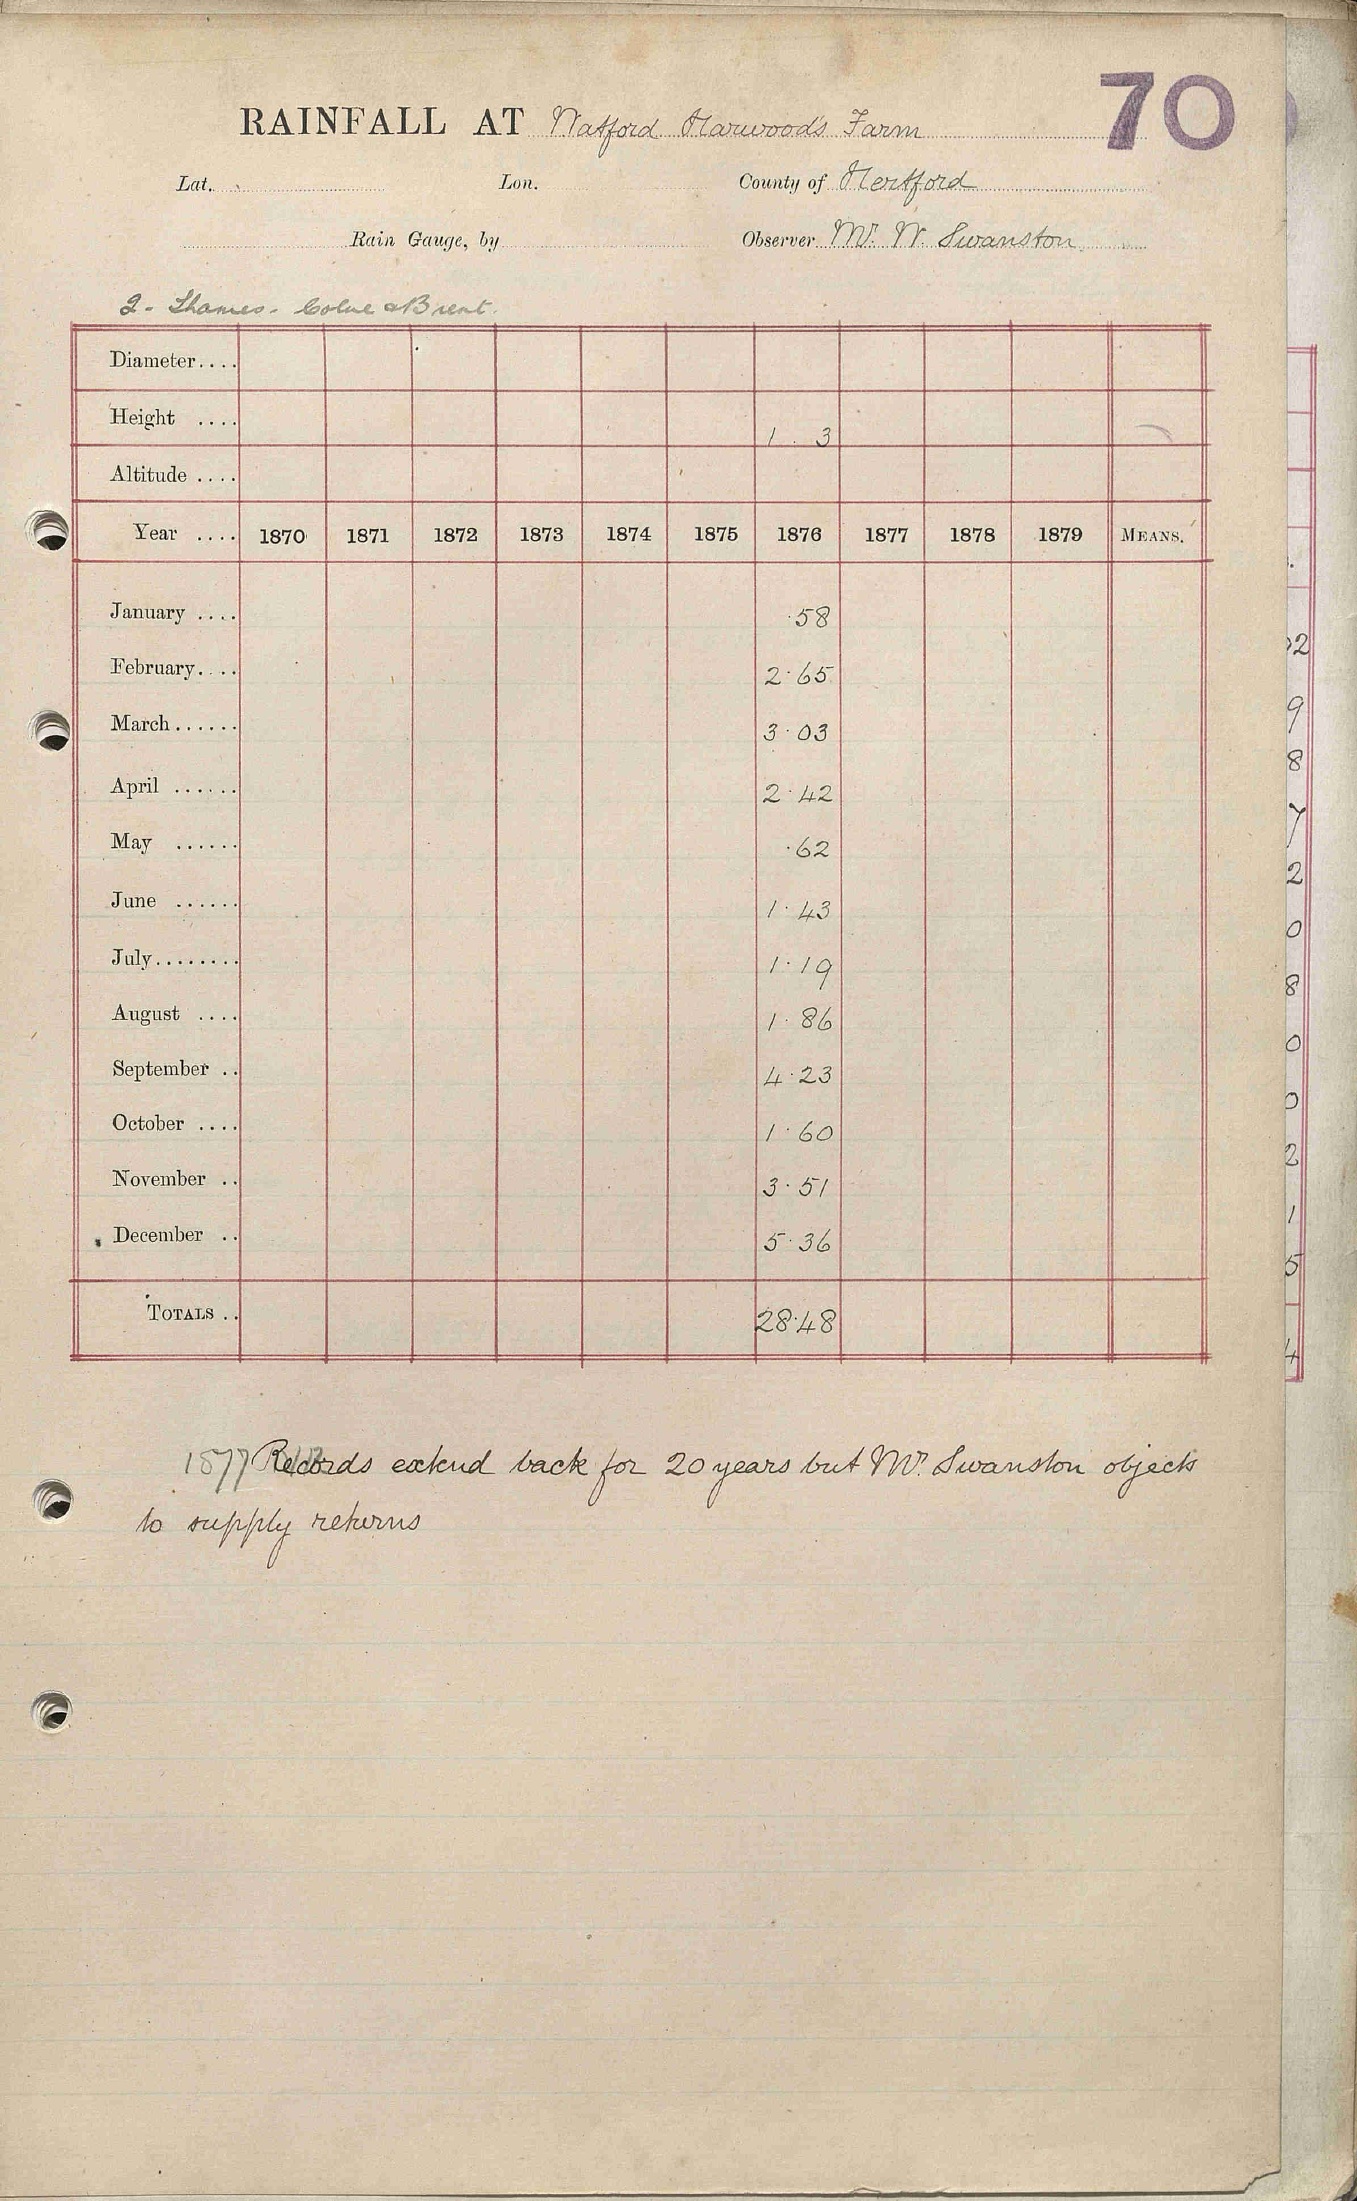 70
RAINFALL AT Watford Harwoods Farm
Lat. Lon. County of Hertford
Rain Gauge, by Observer Mr. W. Swanston
2 - Thames - Colne & Brent.
Diameter....
Height .... 1 . 3
Altitude ....
Year .... 1870 1871 1872 1873 1874 1875 1876 1877 1878 1879 MEANS.
January .... ·58
February.... 2·65
March...... 3·03
April ...... 2·42
May ...... ·62
June ...... 1·43
July........ 1·19
August .... 1·86
September .. 4·23
October .... 1·60
November .. 3·51
December .. 5·36
TOTALS .. 28·48
1877 Records extend back for 20 years but Mr. Swanston objects
to supply returns